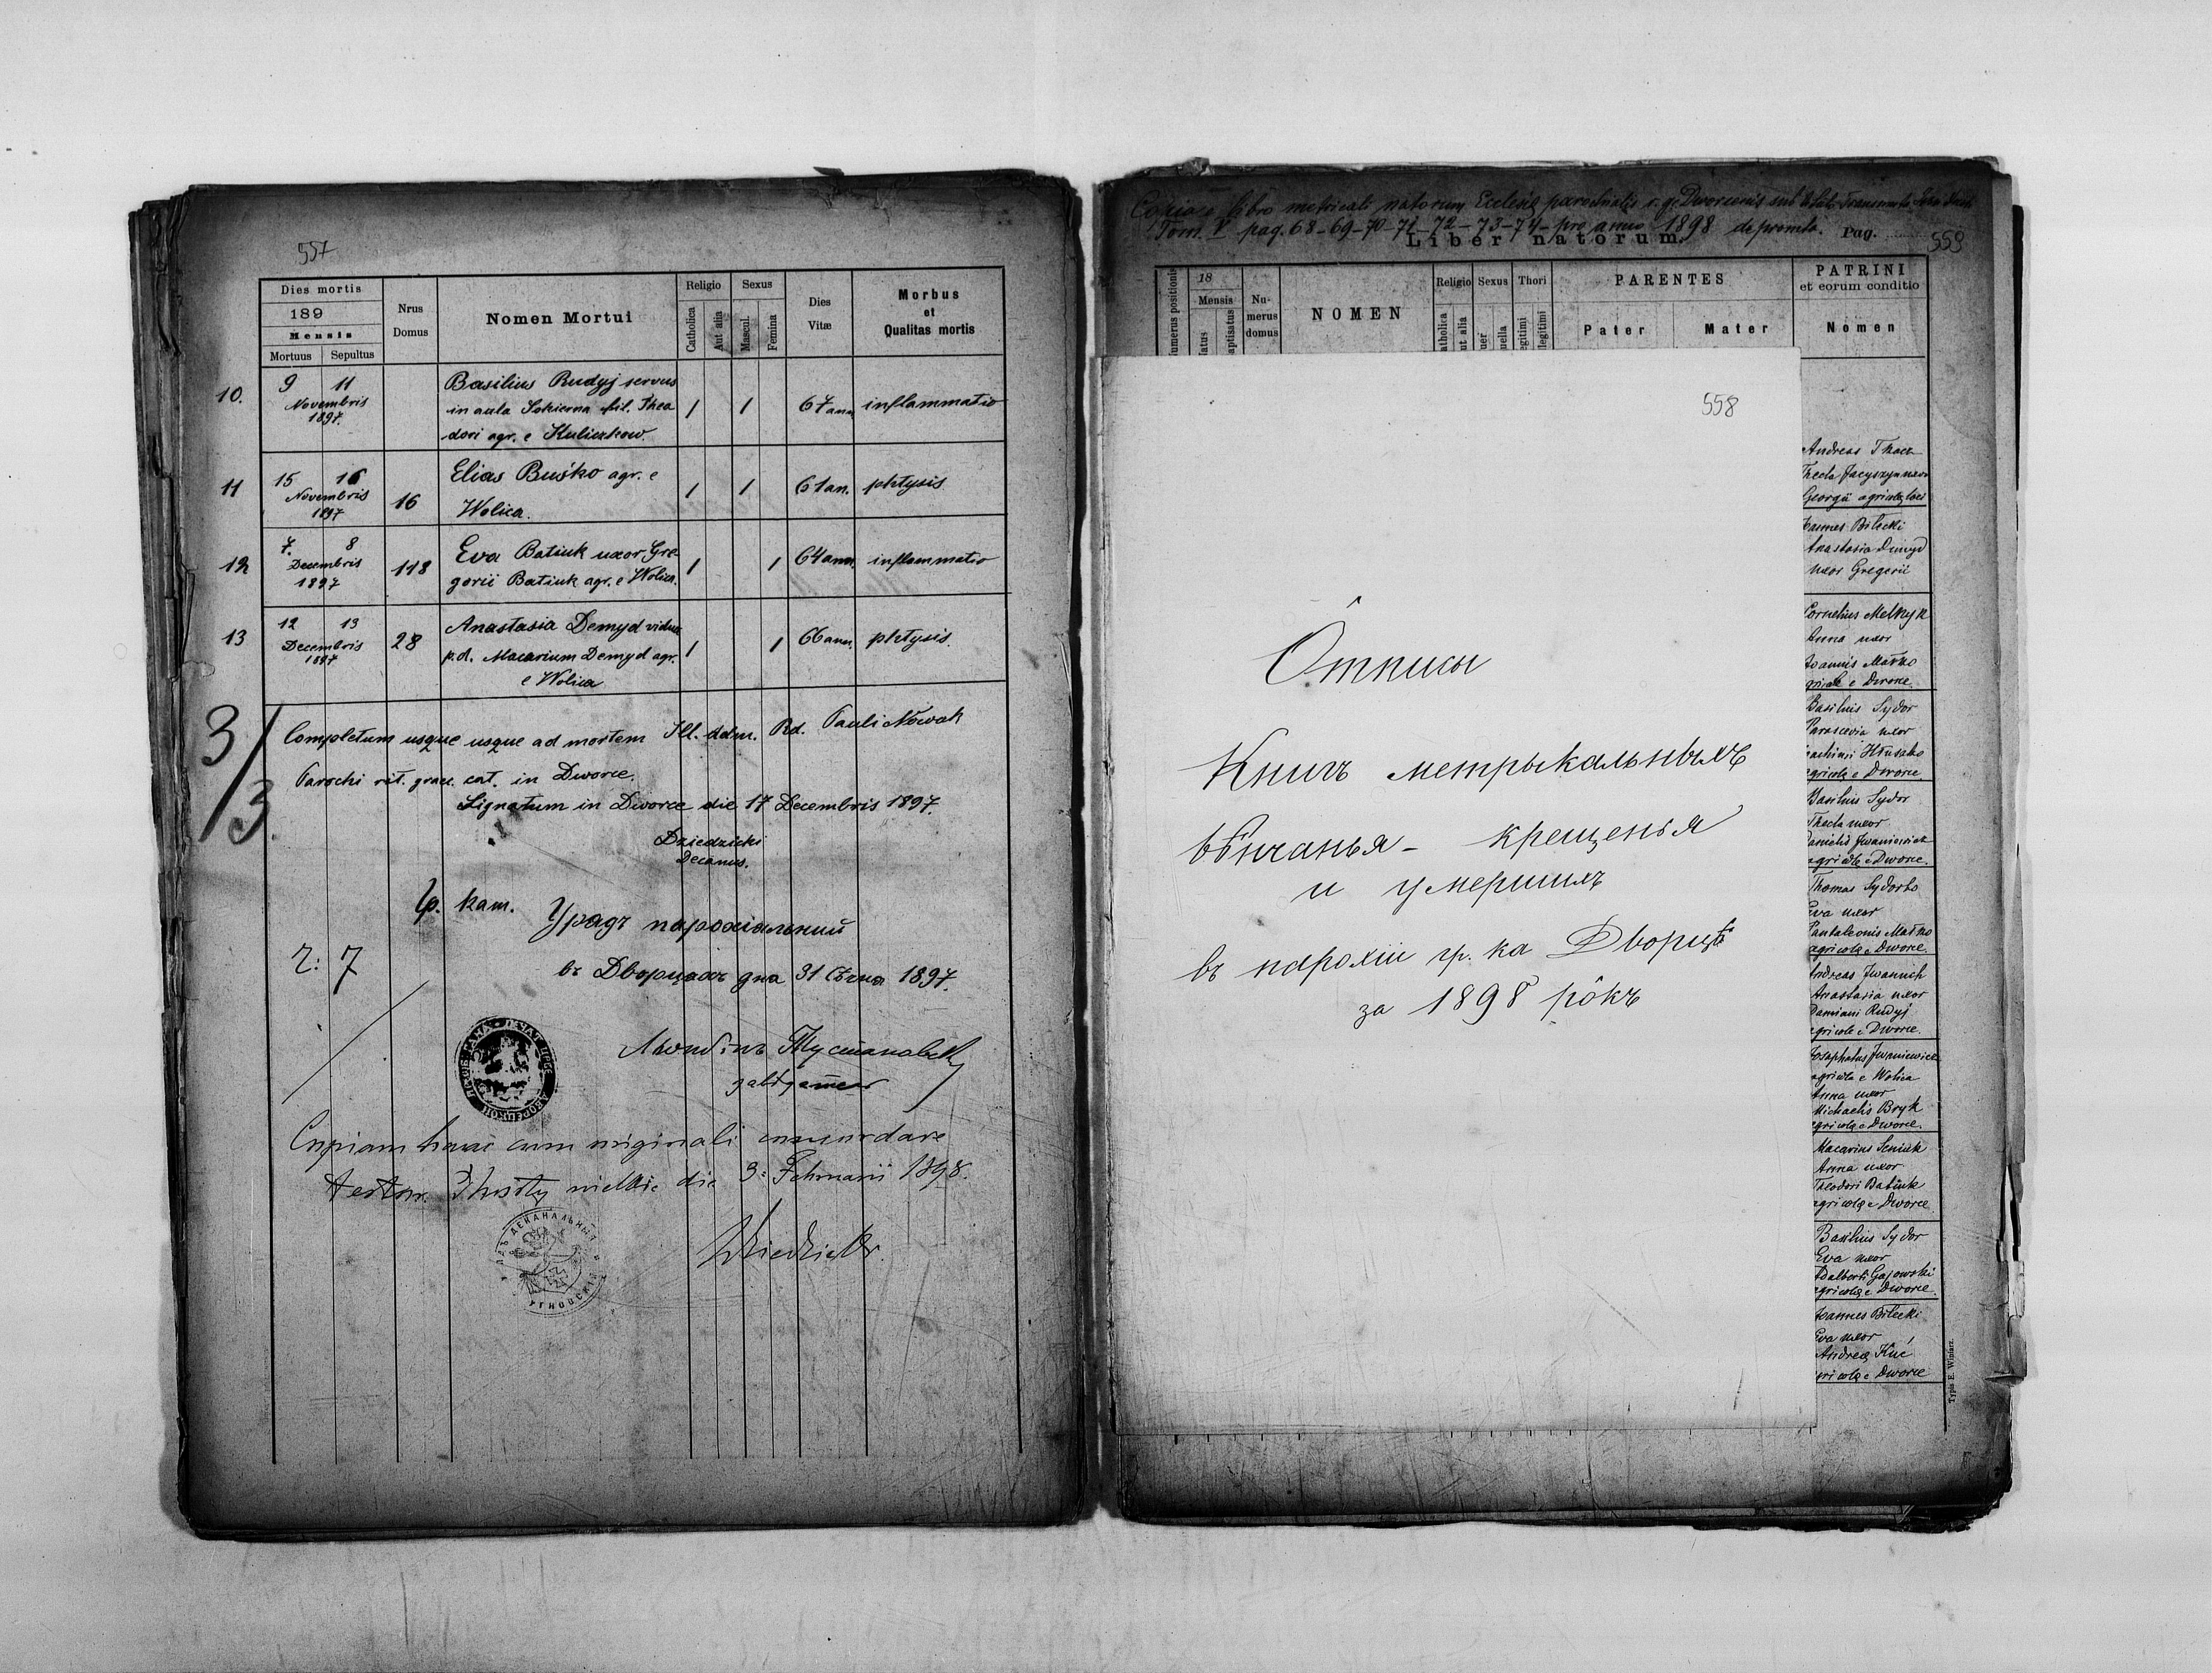 557
Dies mortis
189
Mensis
Mortuus Sepultus
Nrus
Domus
Nomen Mortui
Religio
Catholica
Aut alia
Sexus
Mascul.
Femina
Dies
Vitæ
Morbus
et
Qualitas mortis
10. 9 11
Novembris
1897.
Basilius Rudyj servus
in aula Sokierna fil. Thea
dori agr. e Kuliczkow.
1 1 67 ann inflammatio
11 15 16
Novembris
1897
16
Elias Buśko agr. e
Wolica.
1 1 61 an. phtysis
12 7. 8
Decembris
1897
118
Eva Batiuk uxor Gre-
gorii Batiuk agr. e Wolica.
1 1 64 ann. inflammatio
13 12 13
Decembris
1897
28
Anastasia Demyd vidua
p.d. Macarium Demyd agr.
e Wolica
1 1 66 ann. phtysis.
3/3.
Completum usque usque ad mortem Ill. adm. Rd. Pauli Nowak
Parochi rit. graec. cat. in Dworce.
Signatum in Dworce die 17 Decembris 1897.
Dziedzicki
Decanus.
Гр. кат. Урядъ парохіяльный
Ч: 7
въ Дворцахъ дня 31 Сѣчня 1897.
Copiam hanc cum originali concordare
testor. die 3. Februarii 1898.
Dziedzicki
Copia e libro metricali natorum Ecclesiæ parochialis r. g. Dworcensis sub
Tom. V pag. 68-69-70-71-72-73-74- pro anno 1898 deprompta.
Liber natorum. Pag. 559
Numerus positionis
18
Mensis
Natus
Baptisatus
Nu-
merus
domus
NOMEN
Religio
Catholica
Aut alia
Sexus
Puer
Puella
Thori
Legitimi
Illegitimi
PARENTES
Pater Mater
PATRINI
et eorum conditio
Nomen
558
Ôтписы
Книгъ метрыкальныхъ
вѣнчанья - крещенья
и умершихъ
въ парохіи гр. ка Дворцѣ
за 1898 рôкъ
Andreas Tkacz
Thecla Jacyszyn uxor
Georgii agricolę loci
Joannes Bilecki
Anastasia Dmyd
uxor Gregorii
Cornelius Melnyk
Anna uxor
Joannis Matko
agricolę e Dworce.
Basilius Sydor
Parascevia uxor
Joachimi Hłuszko
agricolę e Dworce
Basilius Sydor
Thecla uxor
Danielis Jwaniewicz
agricolę e Dworce.
Thomas Sydorko
Eva uxor
Pantaleonis Matko
agricolę e Dworce.
Andreas Jwanich
Anastasia uxor
Damiani Rudyj
agricolę e Dworce.
Josaphatus Jwaniewicz
agricola e Wolica
Anna uxor
Michaelis Bryk
agricolę e Dworce.
Macarius Seniuk
Anna uxor
Theodori Batiuk
agricolę e Dworce
Basilius Sydor
Eva uxor
Adalberti Gajowski
agricolę e Dworce.
Joannes Bilecki
Eva uxor
Andreę Kuć
agricolę e Dworce
Typis E. Winiarz.